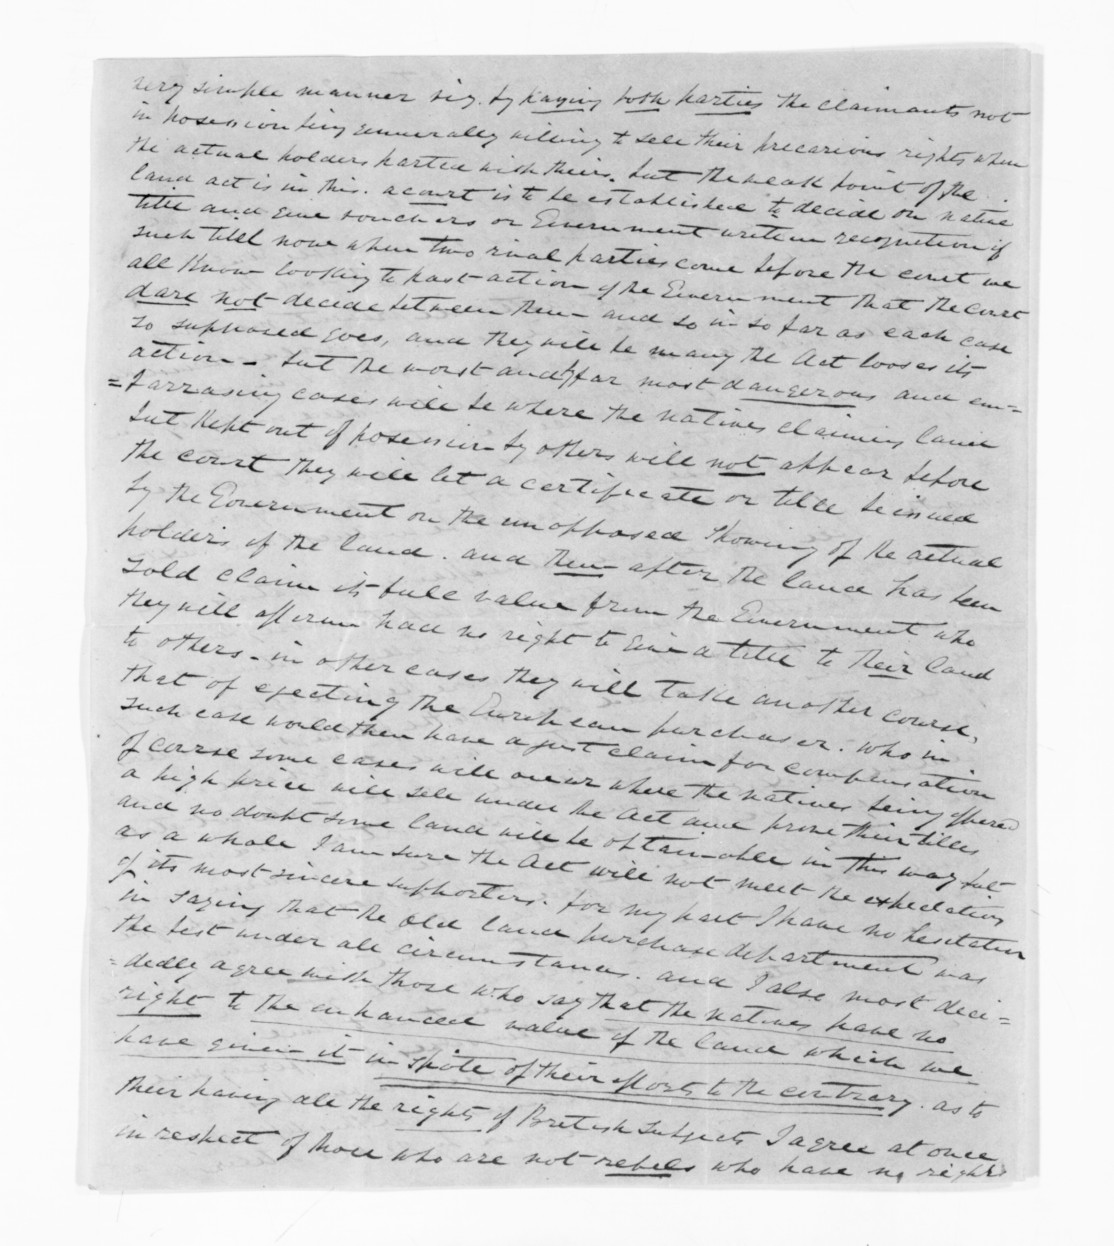 very simple manner viz. by paying both parties the claimants not
in posession being generally willing to sell their precarious rights when
the actual holders parted with theirs. but the weak point of the
land act is in this. a court is to be established to decide on native
title and give vouchers or Government written recognition of
such till now when two rival parties come before the court we
all know looking to past action of the Government that the court
dare not decide between them - and so in so far as each case
so supposed goes, and they will be many the Act looses its
action - but the worst and by far most dangerous and em=
=barrasing cases will be where the natives claiming land
but kept out of posession by others will not appear before
the court they will let a certificate or title be issued
by the Government on the unopposed showing of the actual
holders of the land. and then after the land has been
sold claim its full value from the Government who
they will affirm had no right to give a title to their land
to others - in other cases they will take another course,
that of ejecting the European purchaser. who in
such case would then have a just claim for compensation
of course some cases will occur where the natives being offered
a high price will sell under the Act and prove their titles
and no doubt some land will be obtainable in this way but
as a whole I am sure the Act will not meet the expectations
of its most sincere supporters. for my part I have no hesitation
in saying that the old land purchase department was
the best under all circumstances. and I also most deci=
=dedly agree with those who say that the natives have no
right to the enhanced value of the land which we
have given it in spite of their efforts to the contrary. as to
their having all the rights of British subjects I agree at once
in respect of those who are not rebels who have no rights